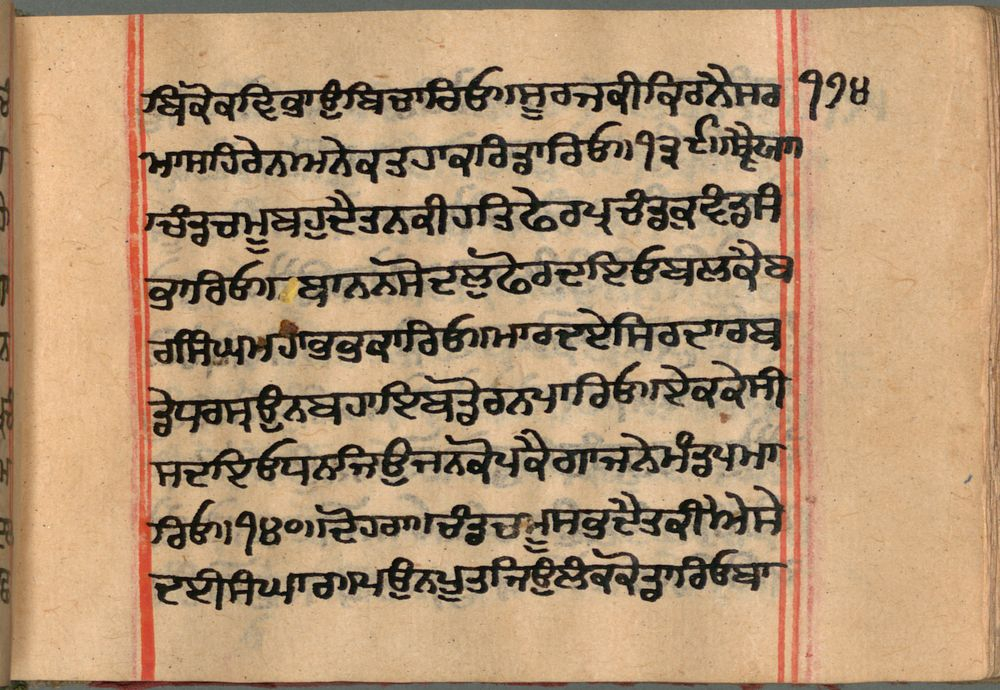 ਬਿਕੋਕਵਿਭਾਉਬਿਚਾਰਿਓ॥ਸੂਰਜਕੀਕਿਰਨੈਸਰ ੧੧੪
ਮਾਸਹਿਰੇਨਅਨੇਕਤਹਾਕਰਿਡਾਰਿਓ॥੧੩੯॥ਸ੍ਵੈਯਾ॥
ਚੰਡਚਮੂਬਹੁਦੈਤਨਕੀਹਤਿਫੇਰਪ੍ਰਚੰਡਕੁਵੰਡਸੰ
ਭਾਰਿਓ॥ਬਾਨਨਸੋਦਲੁਫੋਰਦਇਓਬਲਕੈਬ
ਰਸਿੰਘਮਹਾਭਭਕਾਰਿਓ॥ਮਾਰਦਏਸਿਰਦਾਰਬ
ਡੇਧਰਸ੍ਰਉਨਬਹਾਇਬਡੋਰਨਪਾਰਿਓ॥ਏਕਕੇਸੀ
ਸਦਇਓਧਨਜਿਉਜਨਕੋਪਕੈਗਾਜਨੇਮੰਡਪਮਾ
ਰਿਓ॥੧੪੦॥ਦੋਹਰਾ॥ਚੰਡਚਮੂਸਭਦੈਤਕੀਐਸੇ
ਦਈਸਿੰਘਾਰ॥ਪਉਨਪੂਤਜਿਉਲੰਕਕੋਡਾਰਿਓਬਾ